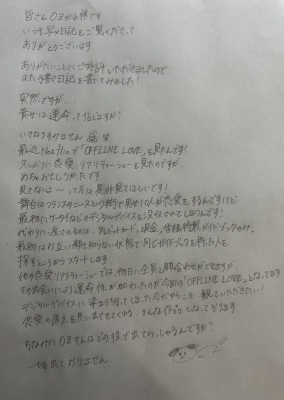 皆さん OZかわ様です
いつも写真日記をご覧くださって
ありがとうございます
ありがたいことにご好評いただきましたので
また手書き日記を書いてみました!
突然ですが、
貴女は運命って信じますか?
いきなりすみません 笑
最近Netflixで「OFFLINE LOVE」を見たんです!
久しぶりに恋愛リアリティーショーを見たのですが、
めちゃおもしろかったです
見てないよ〜って方は是非見てほしいです!
舞台はフランスのニースという街で男女10人が恋愛をするんですけど
最初にケータイなどのデジタルデバイスを没収されてしまうんです!
代わりに渡されるのは、クレジットカード、現金、ガイドブックのみ。
最初はお互い顔も知らない状態で同じガイドブックを持った人を
探すところからスタートします
他の恋愛リアリティーショーでは、初日に全員と顔合わせができますが、
その出会いにより運命性が加わったのが今回の「OFFLINE LOVE」となってます
デジタルデバイスに
恋愛の原点を思い出させてくれる、そんな作品となっております。
ちなみに OZさんはどの役で出ていらっしゃるんですか?
一切出ておりません